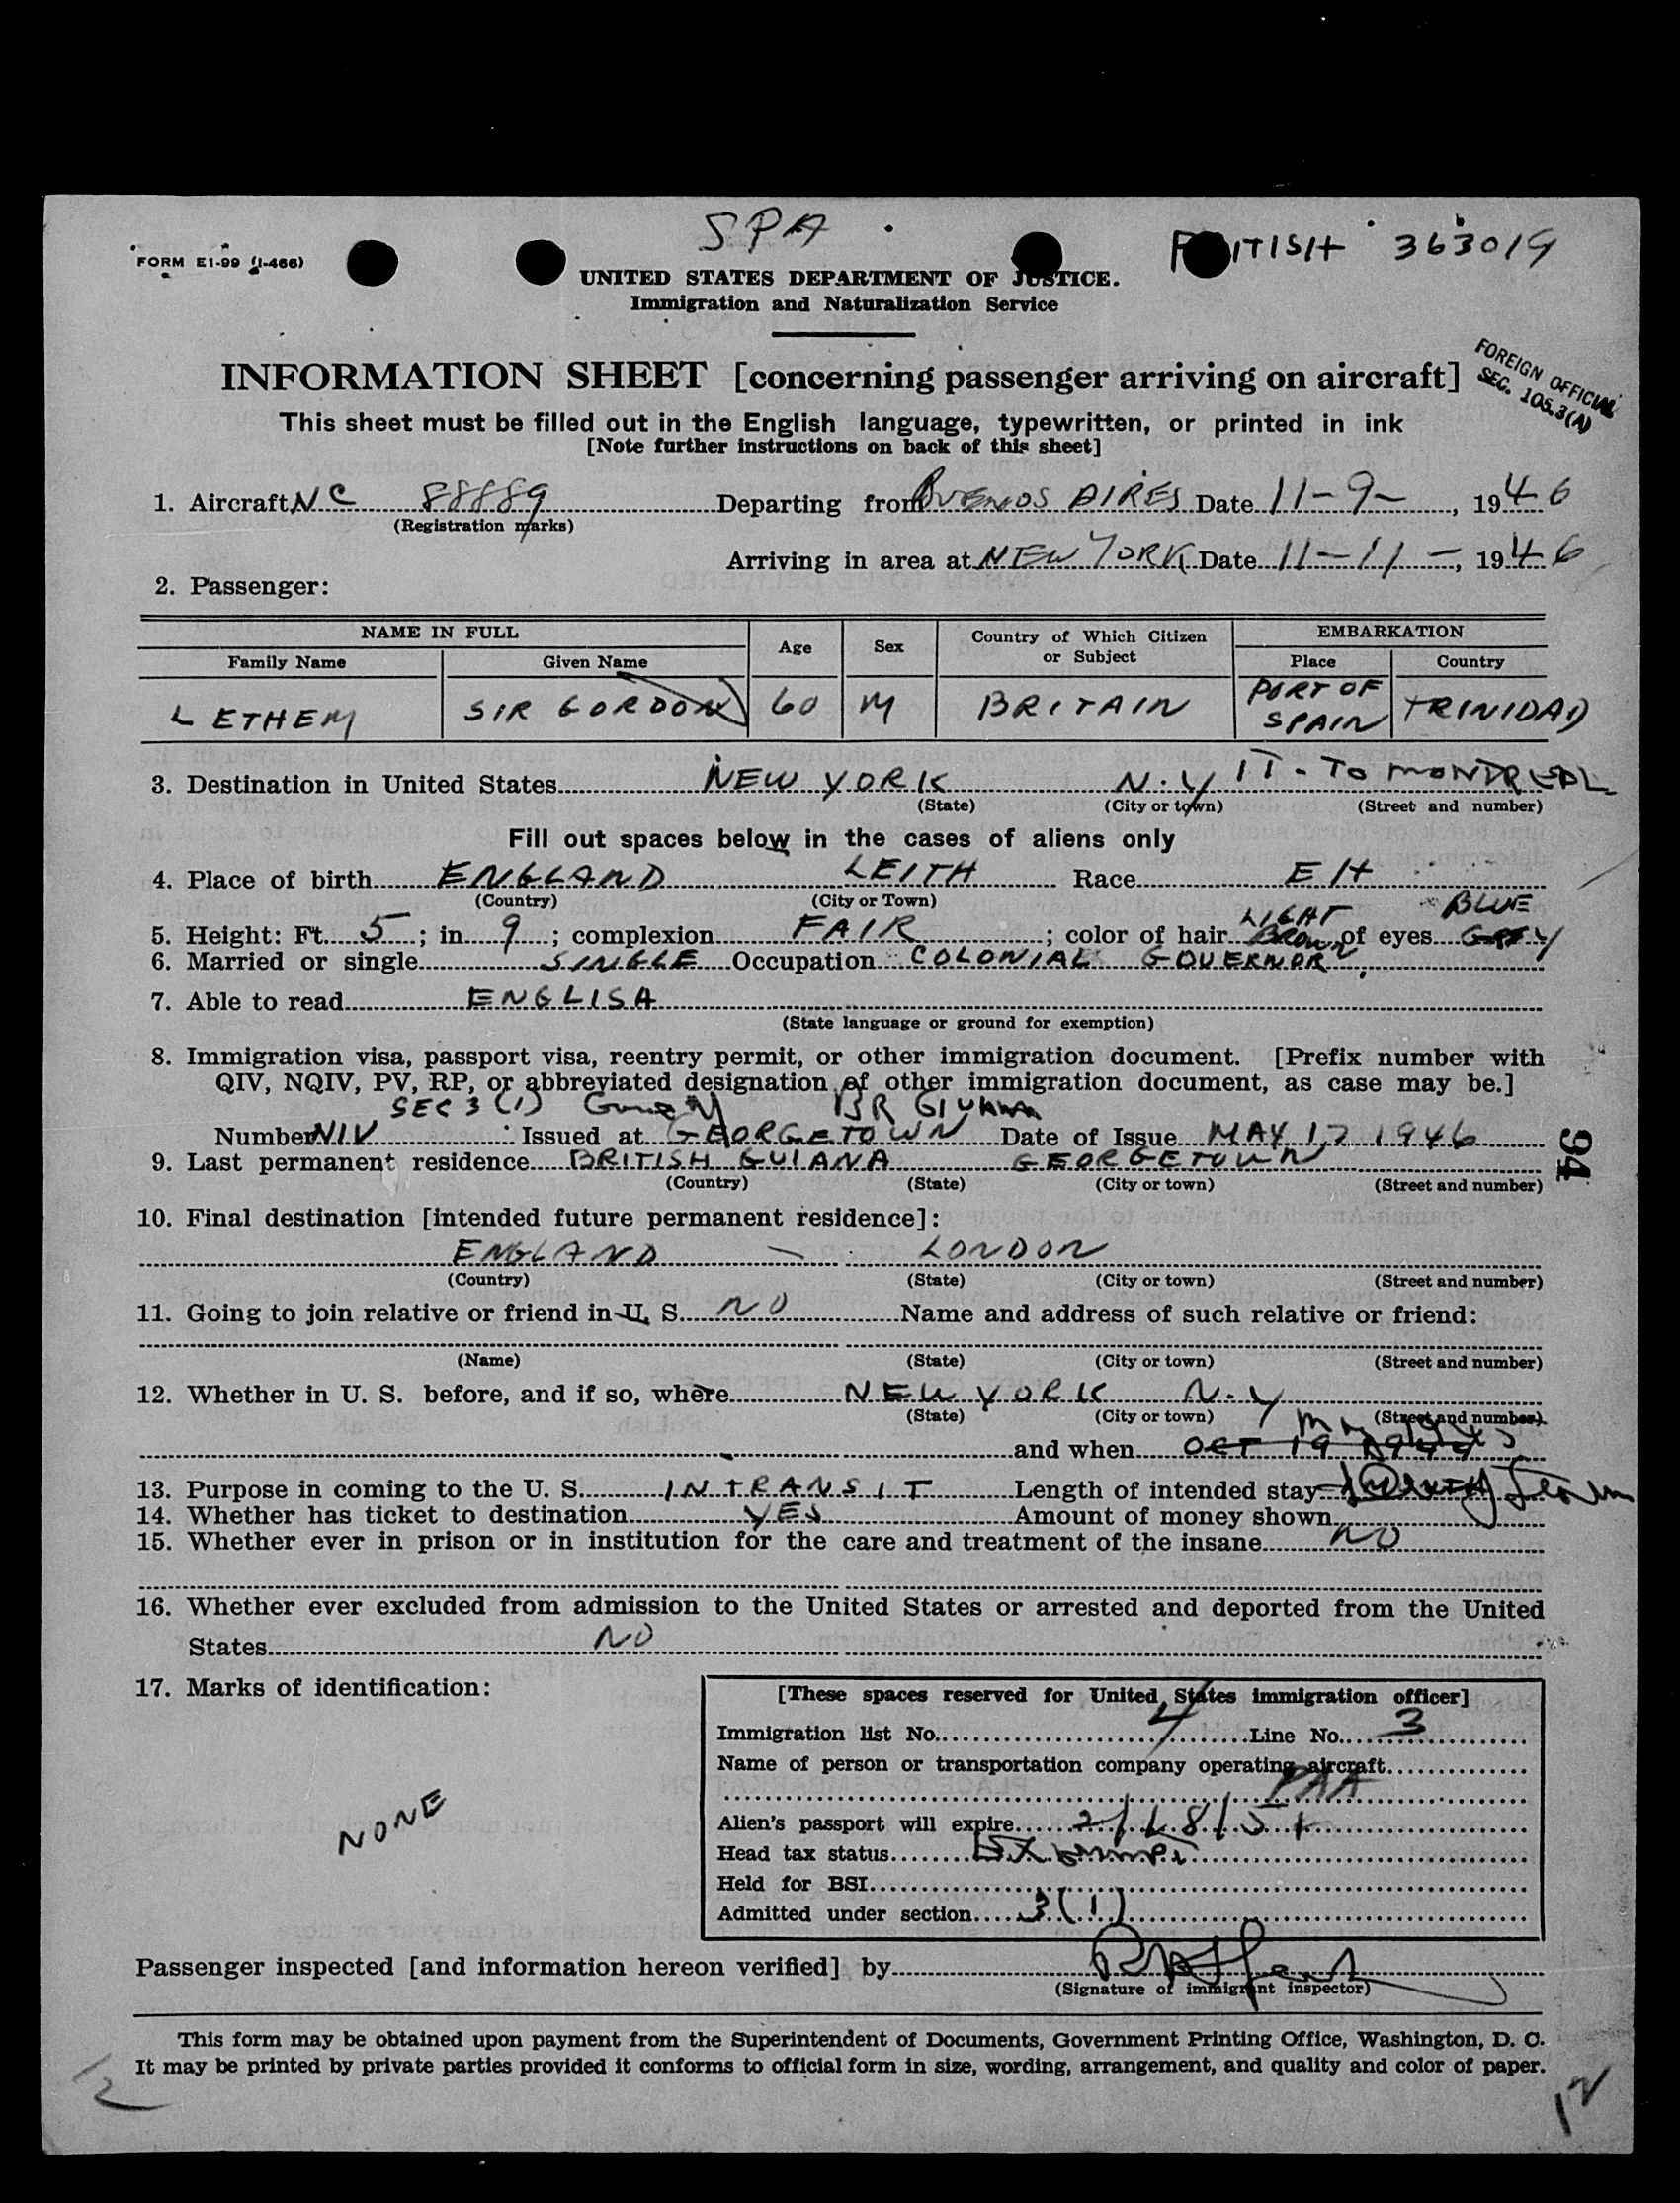 SPA
FORM E1-99 (I-466)
363019
UNITED STATES DEPARTMENT OF JUSTICE.
Immigration and Naturalization Service
INFORMATION SHEET [concerning passenger arriving on aircraft]
FOREIGN OFFICIAL
SEC. 105.3(A)
This sheet must be filled out in the English language, typewritten, or printed in ink
[Note further instructions on back of this sheet]
1. Aircraft NC 88889 Departing from BUENOS AIRES Date 11-9-, 1946
(Registration marks)
Arriving in area at NEW YORK Date 11-11-, 1946
2. Passenger:
NAME IN FULL Age Sex Country of Which Citizen or Subject EMBARKATION
Family Name Given Name Place Country
LETHEM SIR GORDON 60 M BRITAIN PORT OF SPAIN TRINIDAD
3. Destination in United States NEW YORK N.Y IT-TO MONTREAL
(State) (City or town) (Street and number)
Fill out spaces below in the cases of aliens only
4. Place of birth ENGLAND LEITH Race EH
(Country) (City or Town)
LIGHT BLUE
5. Height: Ft. 5; in 9; complexion FAIR; color of hair BROWN of eyes GREY
6. Married or single SINGLE Occupation COLONIAL GOVERNOR
7. Able to read ENGLISH
(State language or ground for exemption)
8. Immigration visa, passport visa, reentry permit, or other immigration document. [Prefix number with
QIV, NQIV, PV, RP, or abbreviated designation of other immigration document, as case may be.]
SEC 3 (1) BR GIUANA
Number NIV Issued at GEORGETOWN Date of Issue MAY 17 1946
9. Last permanent residence BRITISH GUIANA GEORGETOWN
(Country) (State) (City or town) (Street and number)
94
10. Final destination [intended future permanent residence]:
ENGLAND - LONDON
(Country) (State) (City or town) (Street and number)
11. Going to join relative or friend in U. S. NO Name and address of such relative or friend:
(Name) (State) (City or town) (Street and number)
12. Whether in U. S. before, and if so, where NEW YORK N.Y
(State) (City or town) (Street and number)
and when OCT 19
13. Purpose in coming to the U. S. IN TRANSIT Length of intended stay
14. Whether has ticket to destination YES Amount of money shown
15. Whether ever in prison or in institution for the care and treatment of the insane NO
16. Whether ever excluded from admission to the United States or arrested and deported from the United
States NO
17. Marks of identification:
NONE
[These spaces reserved for United States immigration officer]
Immigration list No. 4 Line No. 3
Name of person or transportation company operating aircraft
PAA
Alien's passport will expire 2/18/51
Head tax status Exempt
Held for BSI
Admitted under section 3(1)
Passenger inspected [and information hereon verified] by
(Signature of immigrant inspector)
This form may be obtained upon payment from the Superintendent of Documents, Government Printing Office, Washington, D. C.
It may be printed by private parties provided it conforms to official form in size, wording, arrangement, and quality and color of paper.
2
12